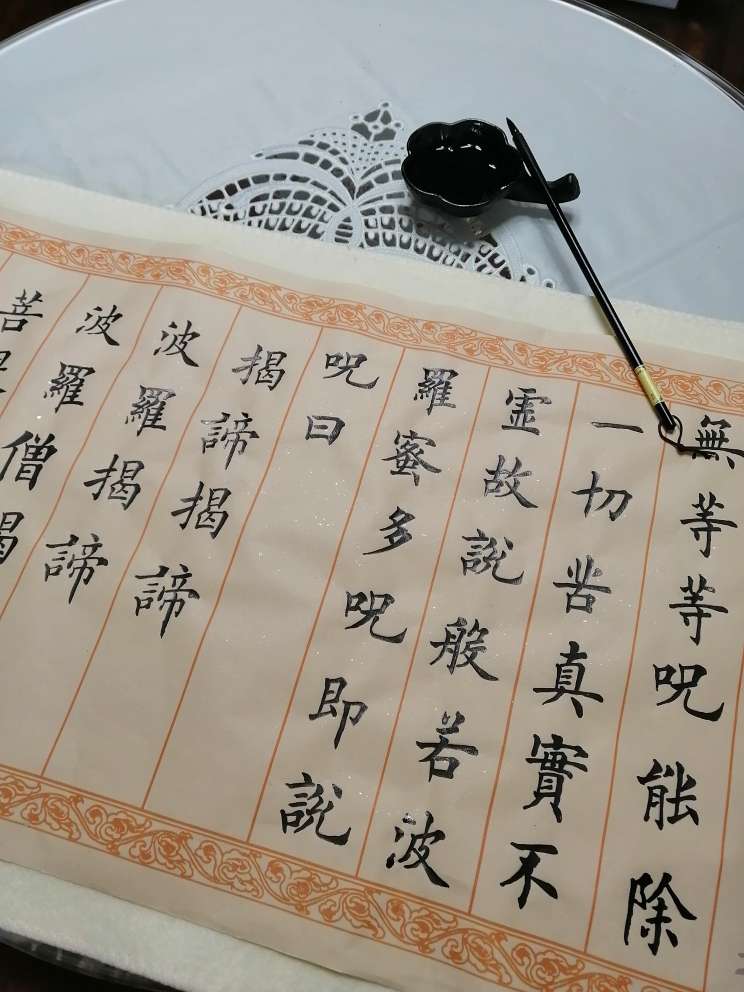 無等等呪能除
一切苦真實不
虚故說般若波
羅蜜多呪即說
呪曰
揭諦揭諦
波羅揭諦
波羅僧揭
菩